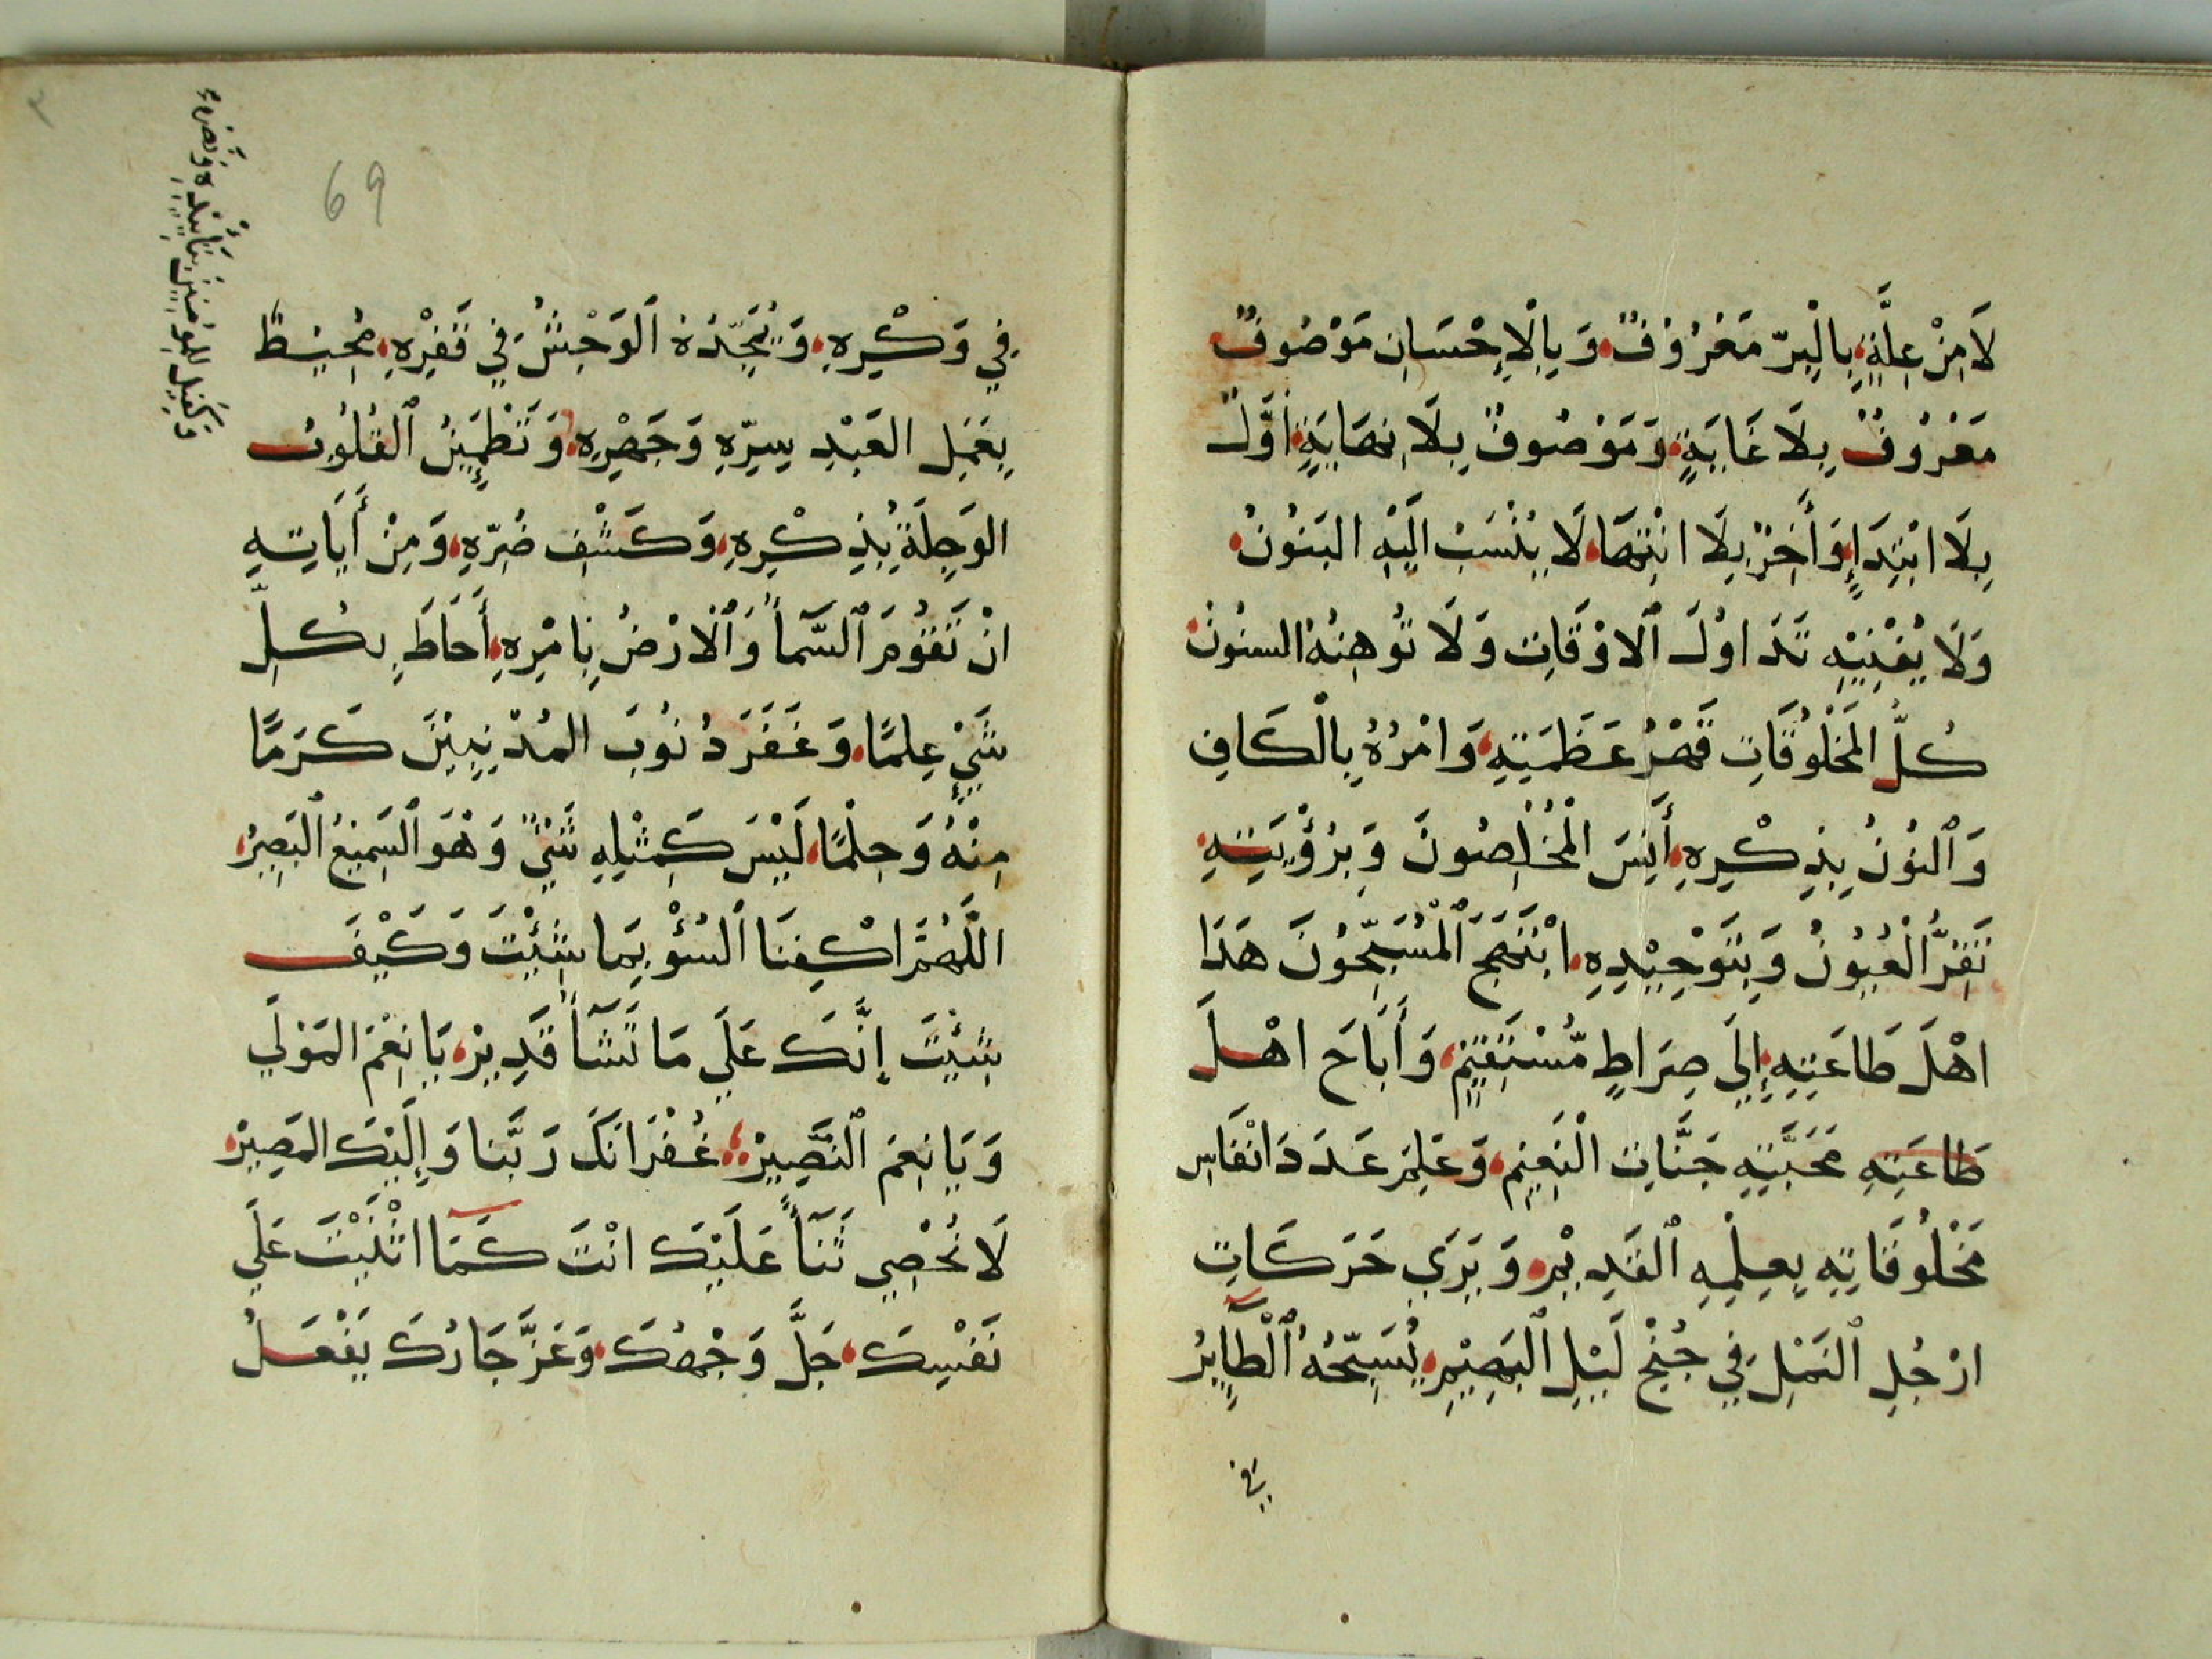 لَا مِنْ عِلَّةٍ بِالْبِرِّ مَعْرُوْفٌ وَبِالْإِحْسَانِ مَوْصُوفٌ
مَعْرُوفٌ بِلَا غَايَةٍ وَمَوْصُوفٌ بِلَا نِهَايَةٍ أَوَّلٌ
بِلَا ابْتِدَاءٍ وَأَخِرٌ بِلَا انْتِهَا لَا يُنْسَبُ اِلَيْهِ البَنُوْنُ
وَلَا يُفْنِيْهِ تَدَاوُلُ ٱلاوْقَاتِ وَلَا تُوهِنُهُ السنُونُ
كُلُّ المَخْلُوقَاتِ قَهْرُ عَظَمَتِهِ وَامْرُهُ بِالْكَافِ
وَٱلنُونُ بِذِكْرِهِ أَنِسَ الْمُخْلِصُونَ وَبِرُؤْيَتِهِ
تَقِرُّ الْعُيُونُ وَبِتَوْحِيْدِهِ ابْتَهَجَ ٱلْمُسَبِّحُونَ هَدَا
اهْلَ طَاعَتِهِ إِلَى صِرَاطٍ مُّسْتَقِيْمٍ وَأَبَاحَ اهْلَ
طَاعَتِهِ مَحَبَّتِهِ جَنَّاتِ الْنَعِيْمِ وَعَلِمَ عَدَدَ انْفَاسِ
مَخْلُوقَاتِهِ بِعِلْمِهِ ٱلقَدِيْمِ وَيَرَى حَرَكَاتِ
ارْجُلِ ٱلنَمْلِ فِي جُنْحِ لَيْلِ ٱلبَهِيْمِ يُسَبِّحُهُ ٱلْطَآيِرُ
في
فِي وَكْرِهِ وَيُمَجِّدُهُ ٱلوَحْشُ فِي قَفْرِهِ مُحِيْطٌ
بِعَمَلِ العَبْدِ سِرِّهِ وَجَهْرِهِ وَتَطْمَئِنُ ٱلقُلُوبُ
الوَجِلَةُ بِذِكْرِهِ وَكَشْفِ ضُرِّهِ وَمِنْ أَيَاتِهِ
انْ تَقُوْمَ ٱلسَّمَآءُ وَٱلْارْضُ بِامْرِهِ أَحَاطَ بِكُلِّ
شَيْءٍ عِلمًا وَغَفَرَ ذُنُوبَ المُذْنِبِيْنَ كَرَمًا
مِنْهُ وَحِلْمًا لَيْسَ كَمِثْلِهِ شَيْءٌ وَهْوَ ٱلسَمِيْعُ ٱلبَصِيْرُ
اللَّهُمَّ اكْفِنَا ٱلسُوْءَ بِمَا شِئْتَ وَكَيْفَ
شِئْتَ إِنَّكَ عَلَى مَا تَشَآءُ قَدِيرْ يَا نِعْمَ المَوْلَى
وَيَا نِعْمَ ٱلنَصِيرْ غُفْرَانَكَ رَبَّنَا وَإِلَيْكَ المَصِيرْ
لَا نُحْصِي ثَنَآءً عَلَيْكَ انْتَ كَمَا اثْنَيْتَ عَلَى
نَفْسِكَ جَلَّ وَجْهُكَ وَعَزَّ جَارُكَ يَفْعَلُ
وَكَفِيل للمؤمنين بِتَأييْدِهِ وَنَصْرِهِ
69
٣